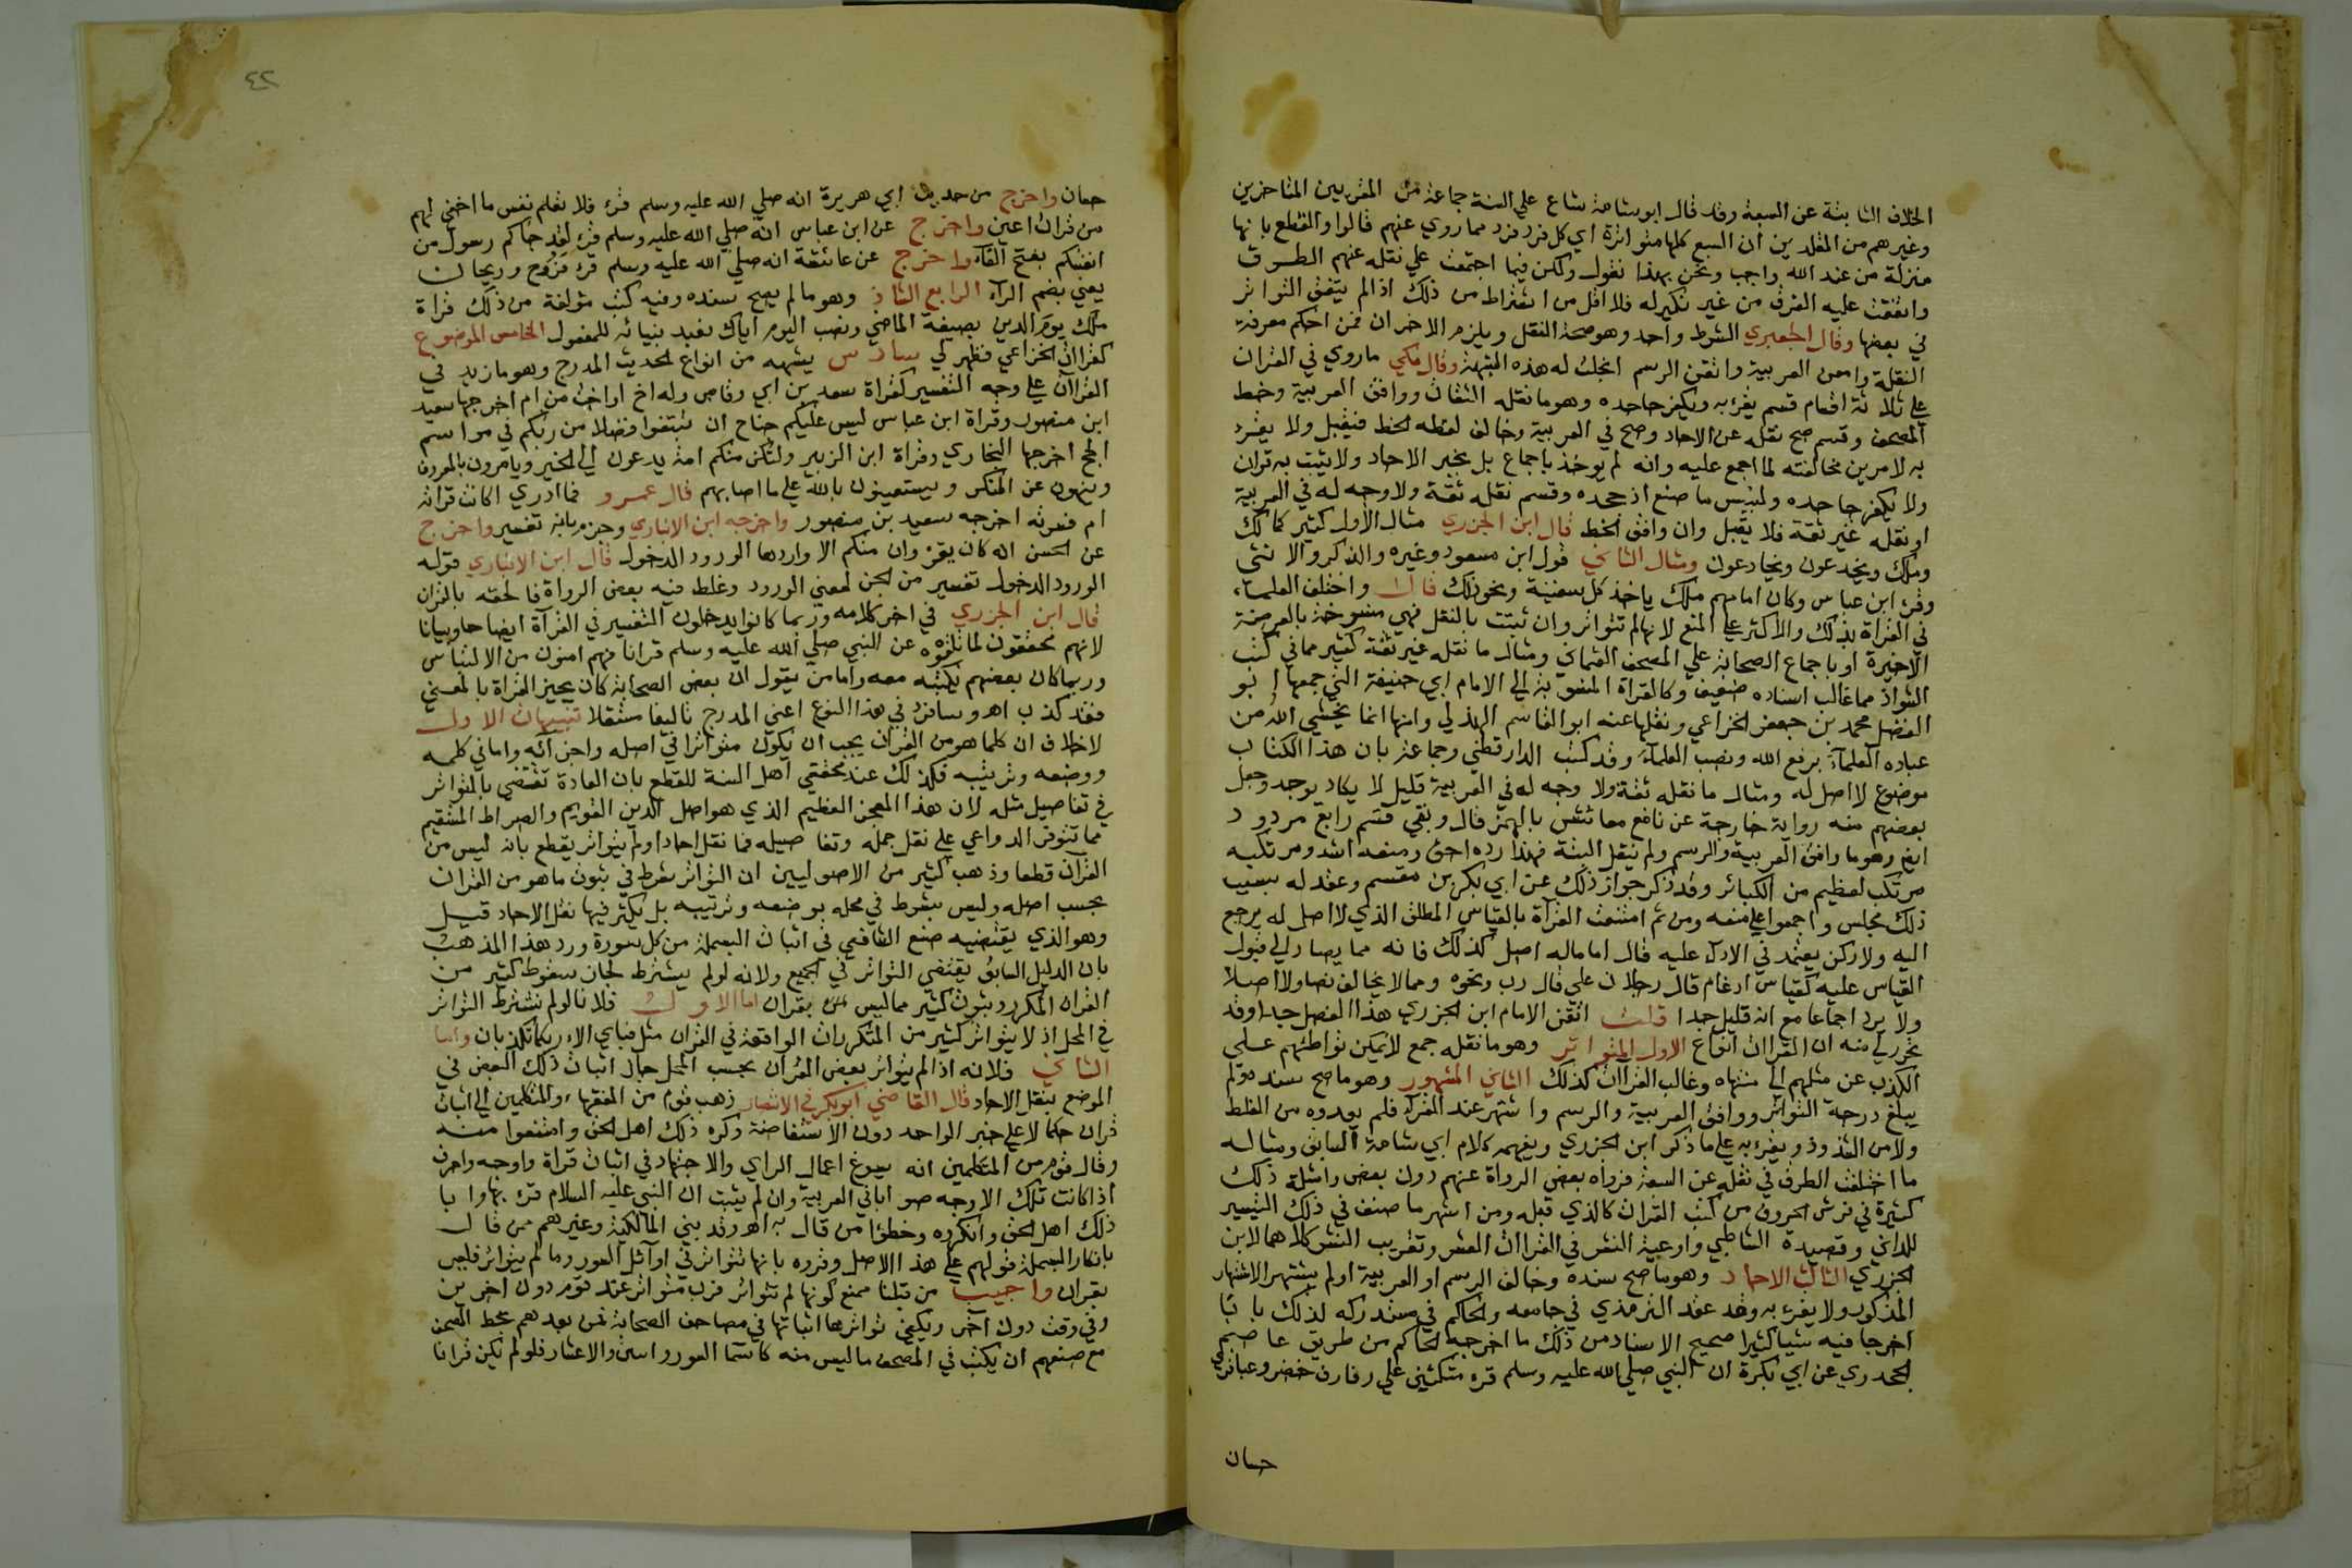 الخلاف الثابتة عن السبعة وقد قال ابو شامة شاع على السنة جماعة من المقربين المتاخرين
وغيرهم من المقلدين ان السبع كلها متواترة اي كل فرد فرد مما روي عنهم قالوا والقطع بانها
منزلة من عند الله واجب ونحن بهذا نقول ولكن فيما اجتمعت علي نقله عنهم الطرق
واتفقت عليه الفرق من غير نكير له فلا اقل من اشتراط من ذلك اذا لم يتفق التواتر
في بعضها وقال الجعبري الشرط واحد وهو صحة النقل ويلزم الاخران فمن احكم معرفة
النقلة وامعن العربية واتقن الرسم انجلت له هذه الشبهة وقال مكي ما روي في القران
علي ثلاثة اقسام قسم يقرء به ويكفر جاحده وهو ما نقله الثقات ووافق العربية وخط
المصحف وقسم صح نقله عن الاحاد وصح في العربية وخالف لفظه الخط فيقبل ولا يقرء
به لامرين مخالفته لما اجمع عليه وانه لم يوخذ باجماع بل بخبر الاحاد ولا يثبت به قران
ولا يكفر جاحده ولبئس ما صنع اذ جحده وقسم نقله ثقة ولا وجه له في العربية
او نقله غير ثقة فلا يقبل وان وافق الخط قال ابن الجزري مثال الاول كثير كمالك
وملك ويخدعون ويخادعون ومثال الثاني قول ابن مسعود وغيره والذكر والانثي
وقرء ابن عباس وكان امامهم ملك ياخذ كل سفينة ونحو ذلك قال واختلف العلماء
في القراة بذلك والاكثر علي المنع لانها لم تتواتر وان ثبتت بالنقل فهي منسوخة بالعرضة
الاخيرة او باجماع الصحابة علي المصحف العثماني ومثال ما نقله غير ثقة كثير مما في كتب
الشواذ مما غالب اسناده ضعيف وكالقراة المنسوبة الي الامام ابي حنيفة التي جمعها ابو
الفضل محمد بن جعفر الخزاعي ونقلها عنه ابو القاسم الهذلي ومنها انما يخشي الله من
عباده العلماء برفع الله ونصب العلماء وقد كتب الدارقطني وجماعة بان هذا الكتاب
موضوع لا اصل له ومثال ما نقله ثقة ولا وجه له في العربية قليل لا يكاد يوجد وجعل
بعضهم منه رواية خارجة عن نافع معائش بالهمز قال وبقي قسم رابع مردود
ايضا وهو ما وافق العربية والرسم ولم ينقل البتة فهذا رده احق ومنعه اشد ومرتكبه
مرتكب لعظيم من الكبائر وقد ذكر جواز ذلك عن ابي بكر بن مقسم وعقد له بسبب
ذلك مجلس واجمعوا علي منعه ومن ثم امتنعت القرآة بالقياس المطلق الذي لا اصل له يرجع
اليه ولا ركن يعتمد في الاداء عليه قال اما ماله اصل كذلك فانه مما يصار الي قبول
القياس عليه كقياس ادغام قال رجلان علي قال رب ونحوه ومما لا يخالف نصا ولا اصلا
ولا يرد اجماعا مع انه قليل جدا قلت اتقن الامام ابن الجزري هذا الفصل جدا وقد
تحرر لي منه ان القراات انواع الاول المتواتر وهو ما نقله جمع لا يمكن تواطئهم علي
الكذب عن مثلهم الي منتهاه وغالب القراات كذلك الثاني المشهور وهو ما صح سنده ولم
يبلغ درجة التواتر ووافق العربية والرسم واشتهر عند القراء فلم يعدوه من الغلط
ولا من الشذوذ ويقرء به علي ما ذكر ابن الجزري ويفهمه كلام ابي شامة السابق ومثاله
ما اختلفت الطرق في نقله عن السبعة فرواه بعض الرواة عنهم دون بعض وامثلة ذلك
كثيرة في فرش الحروف من كتب القراات كالذي قبله ومن اشهر ما صنف في ذلك التيسير
للداني وقصيدة الشاطبي واوعية النشر في القراات العشر وتقريب النشر كلاهما لابن
الجزري الثالث الاحاد وهو ما صح سنده وخالف الرسم او العربية او لم يشتهر الاشتهار
المذكور ولا يقرء به وقد عقد الترمذي في جامعه والحاكم في مستدركه لذلك بابا
اخرجا فيه شيا كثيرا صحيح الاسناد من ذلك ما اخرجه الحاكم من طريق عاصم
الجحدري عن ابي بكرة ان النبي صلي الله عليه وسلم قرء متكئين علي رفارف خضر وعباقري
حسان
حسان واخرج من حديث ابي هريرة انه صلي الله عليه وسلم قرء فلا تعلم نفس ما اخفي لهم
من قرات اعين واخرج عن ابن عباس انه صلي الله عليه وسلم قرء لقد جاكم رسول من
انفسكم بفتح الفاء واخرج عن عائشة انه صلي الله عليه وسلم قرء فروح وريحان
يعني بضم الراء الرابع الشاذ وهو ما لم يصح سنده وفيه كتب مؤلفة من ذلك قراة
ملك يوم الدين بصيغة الماضي ونصب اليوم اياك نعبد ببنيانه للمفعول الخامس الموضوع
كقراات الخزاعي فظهر لي سادس يشبهه من انواع الحديث المدرج وهو ما زيد في
القراآن علي وجه التفسير كقراة سعد بن ابي وقاص وله اخ او اخت من ام اخرجها سعيد
ابن منصور وقراة ابن عباس ليس عليكم جناح ان تبتغوا فضلا من ربكم في مواسم
الحج اخرجها البخاري وقراة ابن الزبير ولتكن منكم امة يدعون الي الخير ويامرون بالمعروف
وينهون عن المنكر ويستعينون بالله علي ما اصابهم قال عمرو فما ادري اكانت قرائه
ام فسر نه اخرجه سعيد بن منصور واخرجه ابن الانباري وجزم بانه تفسير واخرج
عن الحسن انه كان يقرء وان منكم الا واردها الورود الدخول قال ابن الانباري قوله
الورود الدخول تفسير من لحن لمعني الورود وغلط فيه بعض الرواة فالحقه بالقران
قال ابن الجزري في اخر كلامه وربما كانوا يدخلون التفسير في القرآة ايضاحا وبيانا
لانهم محققون لما تلقوه عن النبي صلي الله عليه وسلم قرانا فهم امنون من الالتباس
وربما كان بعضهم يكتبه معه واما من يقول ان بعض الصحابة كان يجيز القراة بالمعني
فقد كذب اهـ وسافرد في هذا النوع اعني المدرج تاليفا مستقلا تنبيهات الاول
لا خلاف ان كلما هو من القران يجب ان يكون متواترا في اصله واجزائه واما في كلمه
ووضعه وترتيبه فكذلك عند محققي اهل السنة للقطع بان العادة تقتضي بالتواتر
في تفاصيل مثله لان هذا المعجز العظيم الذي هو اصل الدين القويم والصراط المستقيم
مما تتوفر الدواعي علي نقل جمله وتفاصيله فما نقل احادا ولم يتواتر يقطع بانه ليس من
القرآن قطعا وذهب كثير من الاصوليين ان التواتر شرط في ثبوت ما هو من القران
بحسب اصله وليس بشرط في محله بوضعه وترتيبه بل يكثر فيها نقل الاحاد قيل
وهو الذي يقتضيه صنع الشافعي في اثبات البسملة من كل سورة ورد هذا المذهب
بان الدليل السابق يقتضي التواتر في الجميع ولانه لو لم يشترط لجاز سقوط كثير من
القران المكرر وثبوت كثير مما ليس بقران اما الاول فلانا لو لم نشترط التواتر
في المحل اذ لا يتواتر كثير من المتكررات الواقعة في القران مثل فباي الاء ربكما تكذبان واما
الثاني فلانه اذا لم يتواتر بعض القران بحسب المحل جاز اثبات ذلك البعض في
الموضع بنقل الاحاد قال القاضي ابو بكر في الانتصار ذهب قوم من الفقهاء والمتكلمين الي اثبات
قران حكما لا علي خبر الواحد دون الاستفاضة وكره ذلك اهل الحق وامتنعوا منه
وقال قوم من المتكلمين انه يسوغ اعمال الراي والاجتهاد في اثبات قراة واوجه واحرف
اذا كانت تلك الاوجه صوابا في العربية وان لم يثبت ان النبي عليه السلام قرء بها وابا
ذلك اهل الحق وانكروه وخطؤا من قال به اهـ وقد بني المالكية وغيرهم من قال
بانكار البسملة قولهم علي هذا الاصل وقرره بانها تتواتر في اوآئل السور وما لم يتواتر فليس
بقران واجيب من قبلنا بمنع كونها لم تتواتر فرب متواتر عند قوم دون اخرين
وفي وقت دون آخر ويكفي تواترها اثباتها في مصاحف الصحابة فمن بعدهم بخط المصحف
مع منعهم ان يكتب في المصحف ما ليس منه كاسما السور وامين والاعشار فلو لم تكن قرانا
٤٢